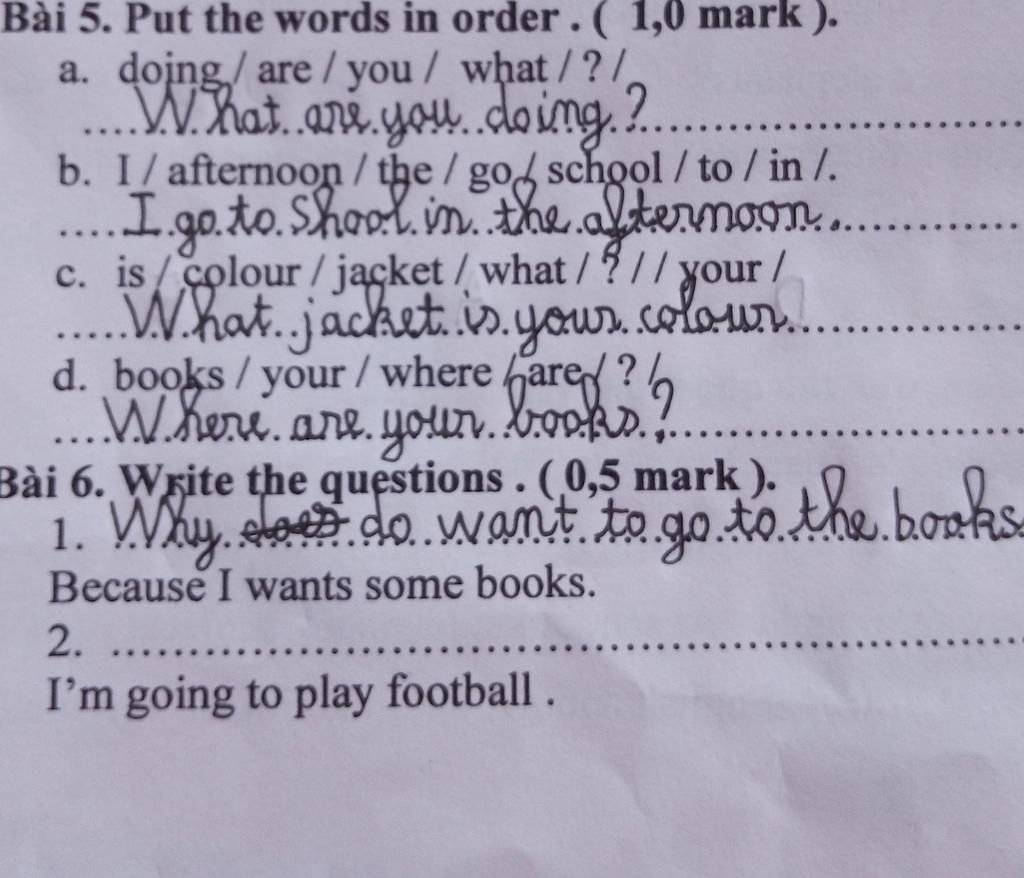 Bài 5. Put the words in order . ( 1,0 mark ).
a. doing / are / you / what / ? /
What are you doing ?
b. I / afternoon / the / go / school / to / in /.
I go to Shool in the afternoon.
c. is / colour / jacket / what / ? / / your /
What jacket is your colour
d. books / your / where / are / ? /
Where are your books?
Bài 6. Write the questions . ( 0,5 mark ).
1. Why does do want to go to the books
Because I wants some books.
2. ........................................
I'm going to play football .